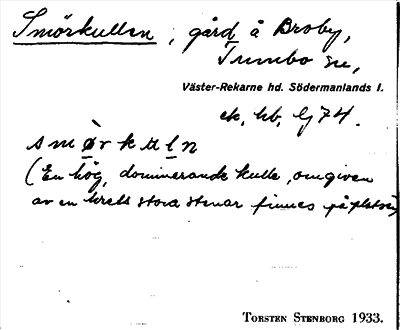 Smörkullen, gård å Broby,
Tumbo sn,
Väster-Rekarne hd. Södermanlands l.
ek. kb. lj 74.
smørkuln
(En hög, dominerande kulle, omgiven
av en krets stora stenar finnes på platsen)
TORSTEN STENBORG 1933.